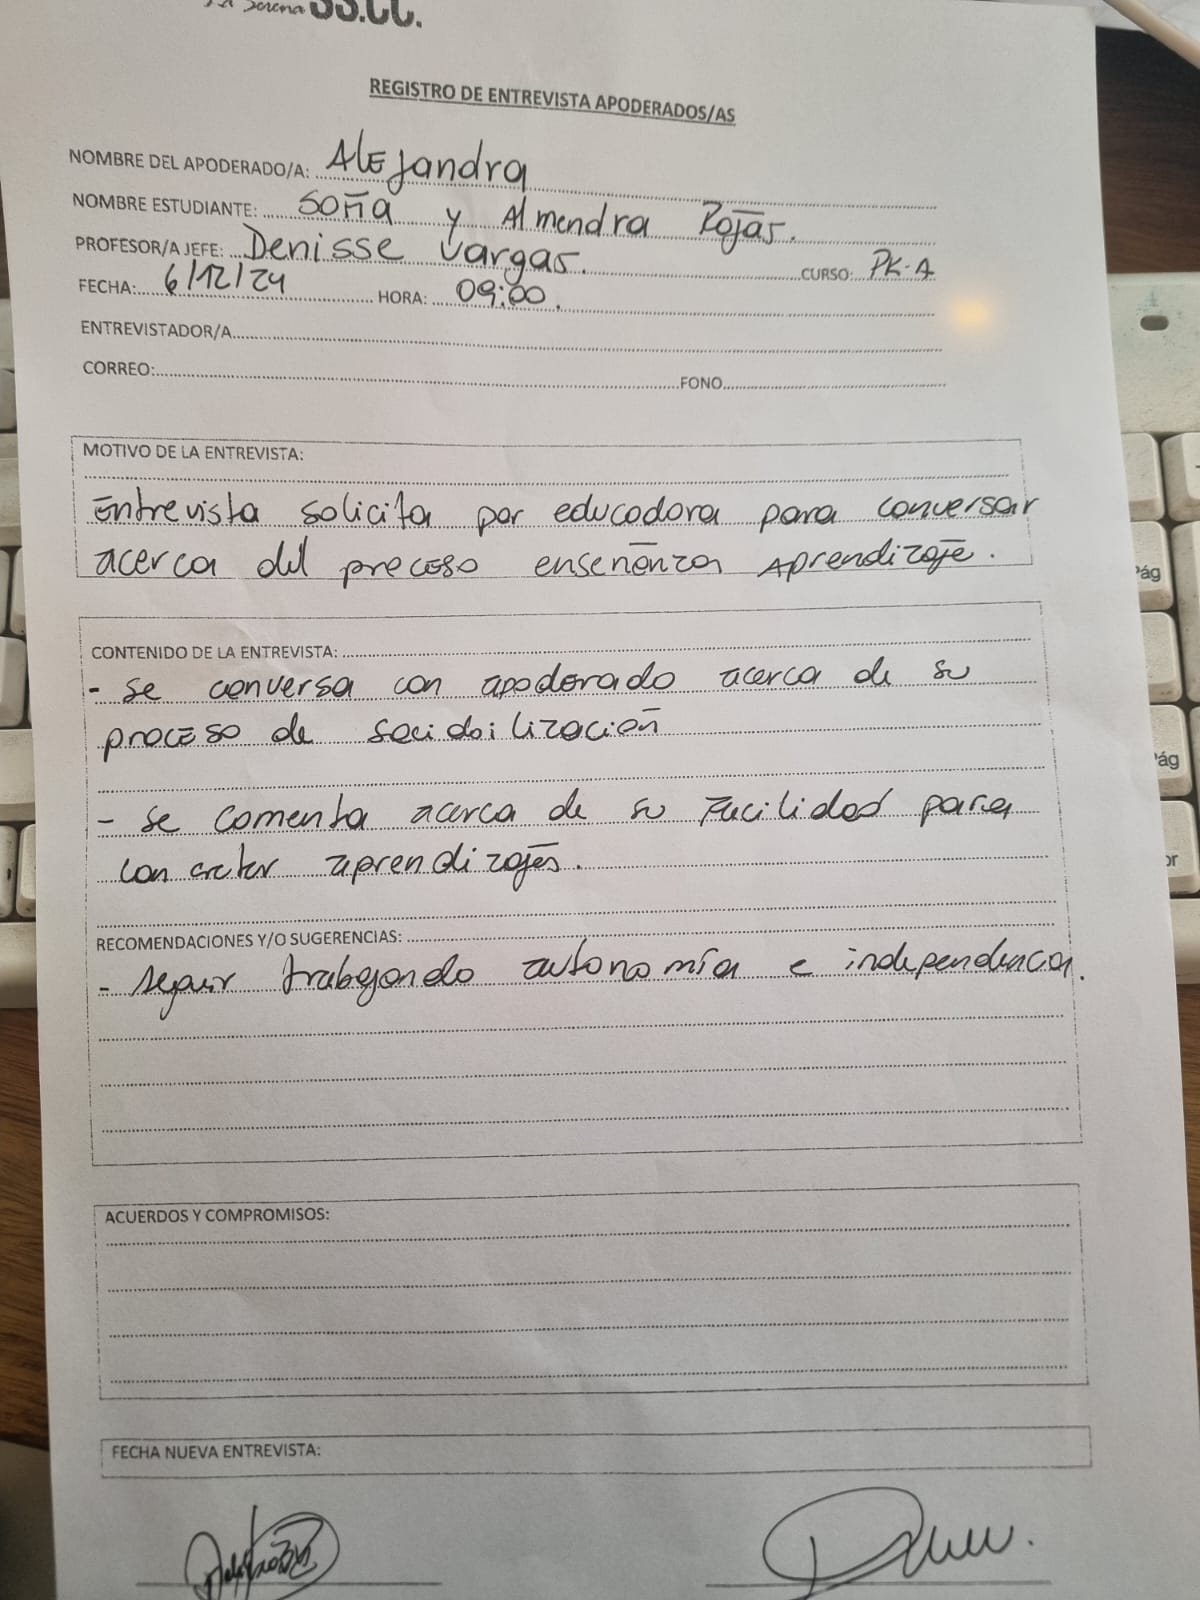 La Serena SS.CC.
REGISTRO DE ENTREVISTA APODERADOS/AS
NOMBRE DEL APODERADO/A: Alejandra
NOMBRE ESTUDIANTE: Sofia y Almendra Rojas.
PROFESOR/A JEFE: Denisse Vargas. CURSO: PK-A
FECHA: 6/12/24 HORA: 09:00.
ENTREVISTADOR/A
CORREO: FONO
MOTIVO DE LA ENTREVISTA:
Entrevista solicita por educadora para conversar
acerca del proceso enseñanza Aprendizaje.
CONTENIDO DE LA ENTREVISTA:
- se conversa con apoderado acerca de su
proceso de
- se comenta acerca de su Facilidad para
aprendizajes.
RECOMENDACIONES Y/O SUGERENCIAS:
- seguir trabajando autonomía e independencia.
ACUERDOS Y COMPROMISOS:
FECHA NUEVA ENTREVISTA:
Pág
Pág
or